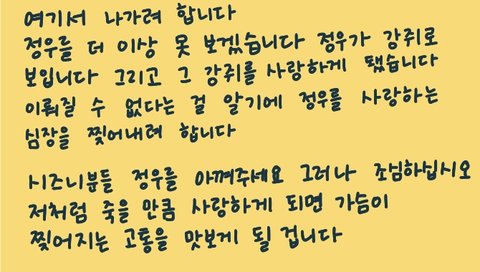 여기서 나가려 합니다
정우를 더 이상 못 보겠습니다 정우가 강쥐로
보입니다 그리고 그 강쥐를 사랑하게 됐습니다
이뤄질 수 없다는 걸 알기에 정우를 사랑하는
심장을 찢어내려 합니다
시즈니분들 정우를 아껴주세요 그러나 조심하십시오
저처럼 죽을 만큼 사랑하게 되면 가슴이
찢어지는 고통을 맛보게 될 겁니다